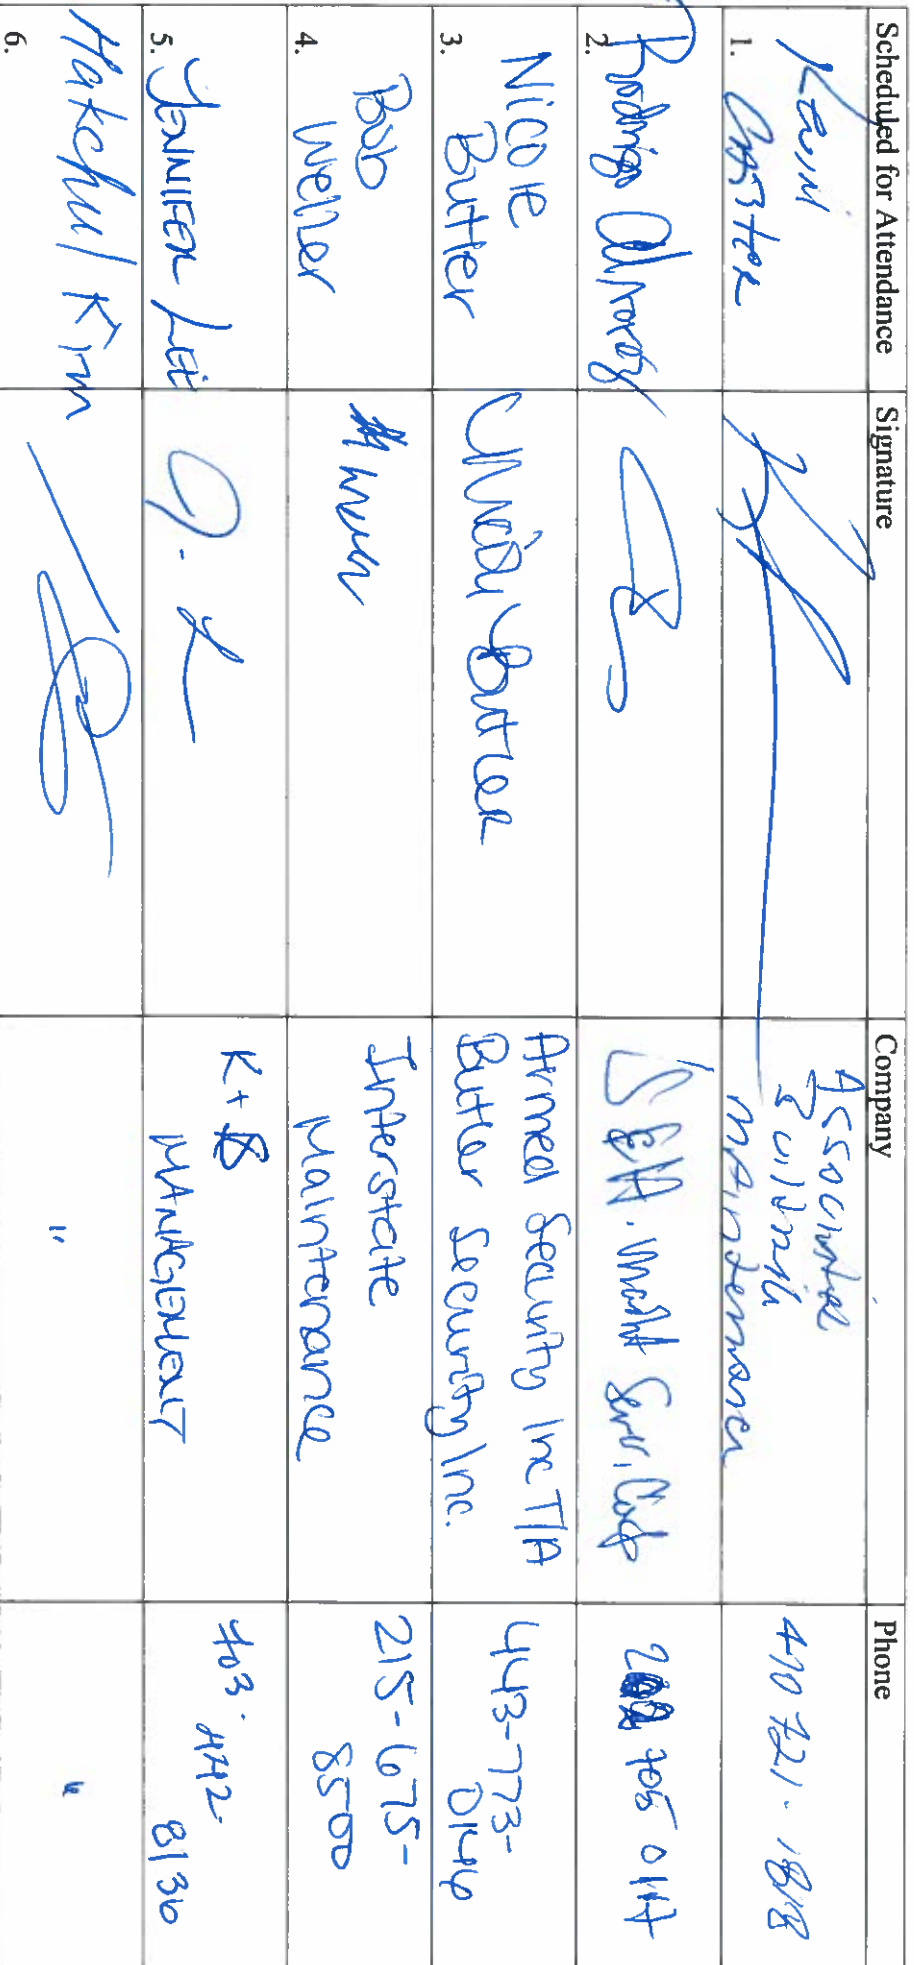 Scheduled for Attendance Signature Company Phone
1. Kevin
Associated
Building
Maintenance
410 721. 1818
2. Rodrigo
Serv. Corp
3. Nicole
Butler
Butler
Armed Security Inc T/A
Butler Security Inc.
443-773-
0146
4. Bob
Weller
Interstate
Maintenance
215-675-
8500
5. JENNIFER LEE
J. L
K+B
MANAGEMENT
703. 442-
8136
6. Hakchul Kim
"
"